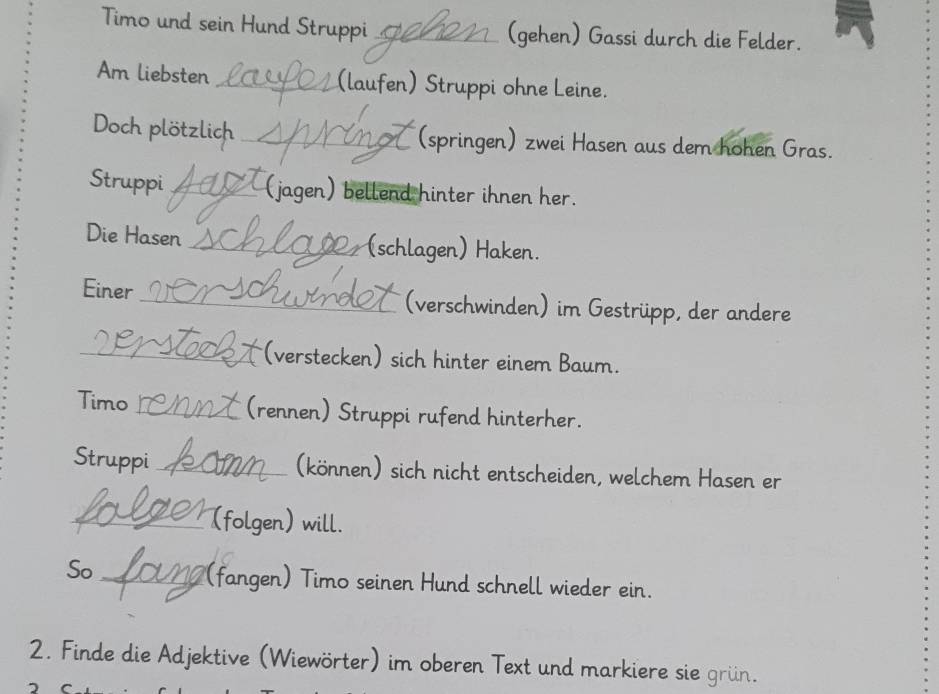 Timo und sein Hund Struppi gehen (gehen) Gassi durch die Felder.
Am liebsten laufen (laufen) Struppi ohne Leine.
Doch plötzlich springt (springen) zwei Hasen aus dem hohen Gras.
Struppi jagt (jagen) bellend hinter ihnen her.
Die Hasen schlagen (schlagen) Haken.
Einer verschwindet (verschwinden) im Gestrüpp, der andere
versteckt (verstecken) sich hinter einem Baum.
Timo rennt (rennen) Struppi rufend hinterher.
Struppi kann (können) sich nicht entscheiden, welchem Hasen er
folgen (folgen) will.
So fang (fangen) Timo seinen Hund schnell wieder ein.
2. Finde die Adjektive (Wiewörter) im oberen Text und markiere sie grün.